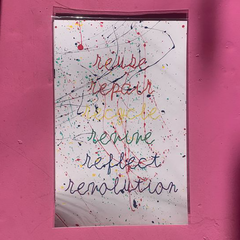 reuse
repair
recycle
revive
reflect
revolution